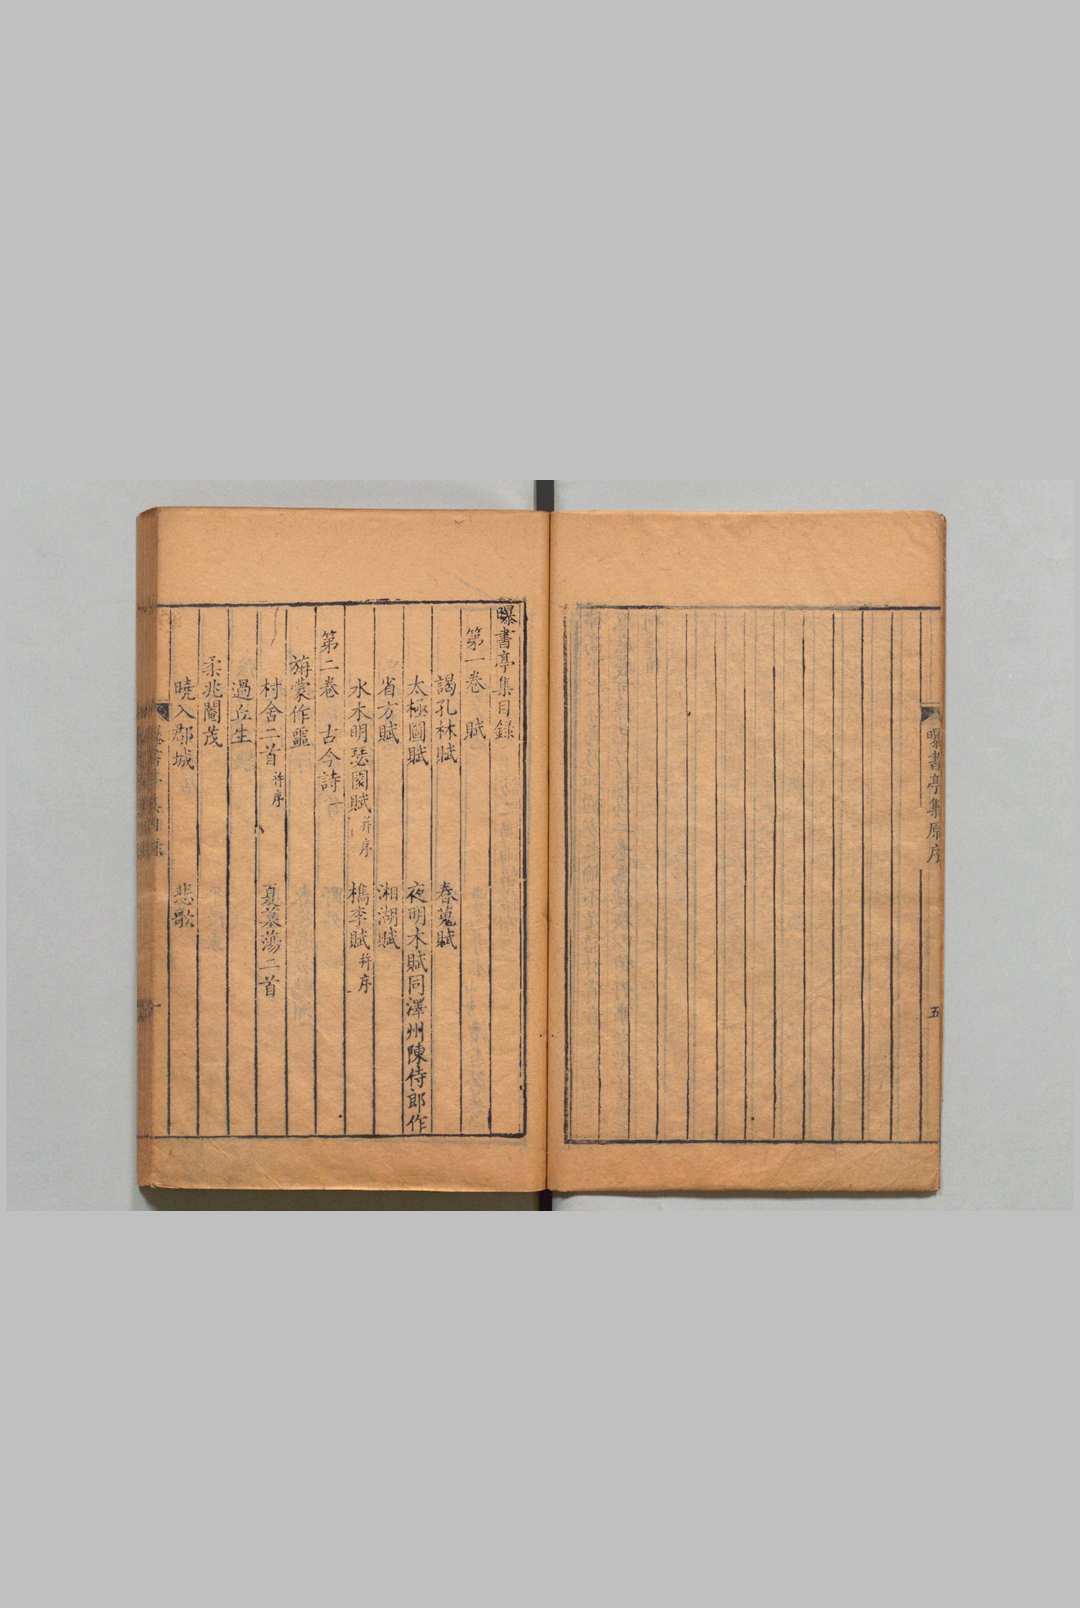 曝書亭集原序
五
曝書亭集目錄
第一卷 賦
謁孔林賦 春蒐賦
太極圖賦 夜明木賦同澤州陳侍郎作
省方賦 湘湖賦
水木明瑟園賦并序 檇李賦并序
第二卷 古今詩一
旃蒙作噩
村舍二首并序 夏墓蕩二首
過丘生
柔兆閹茂
曉入郡城 悲歌